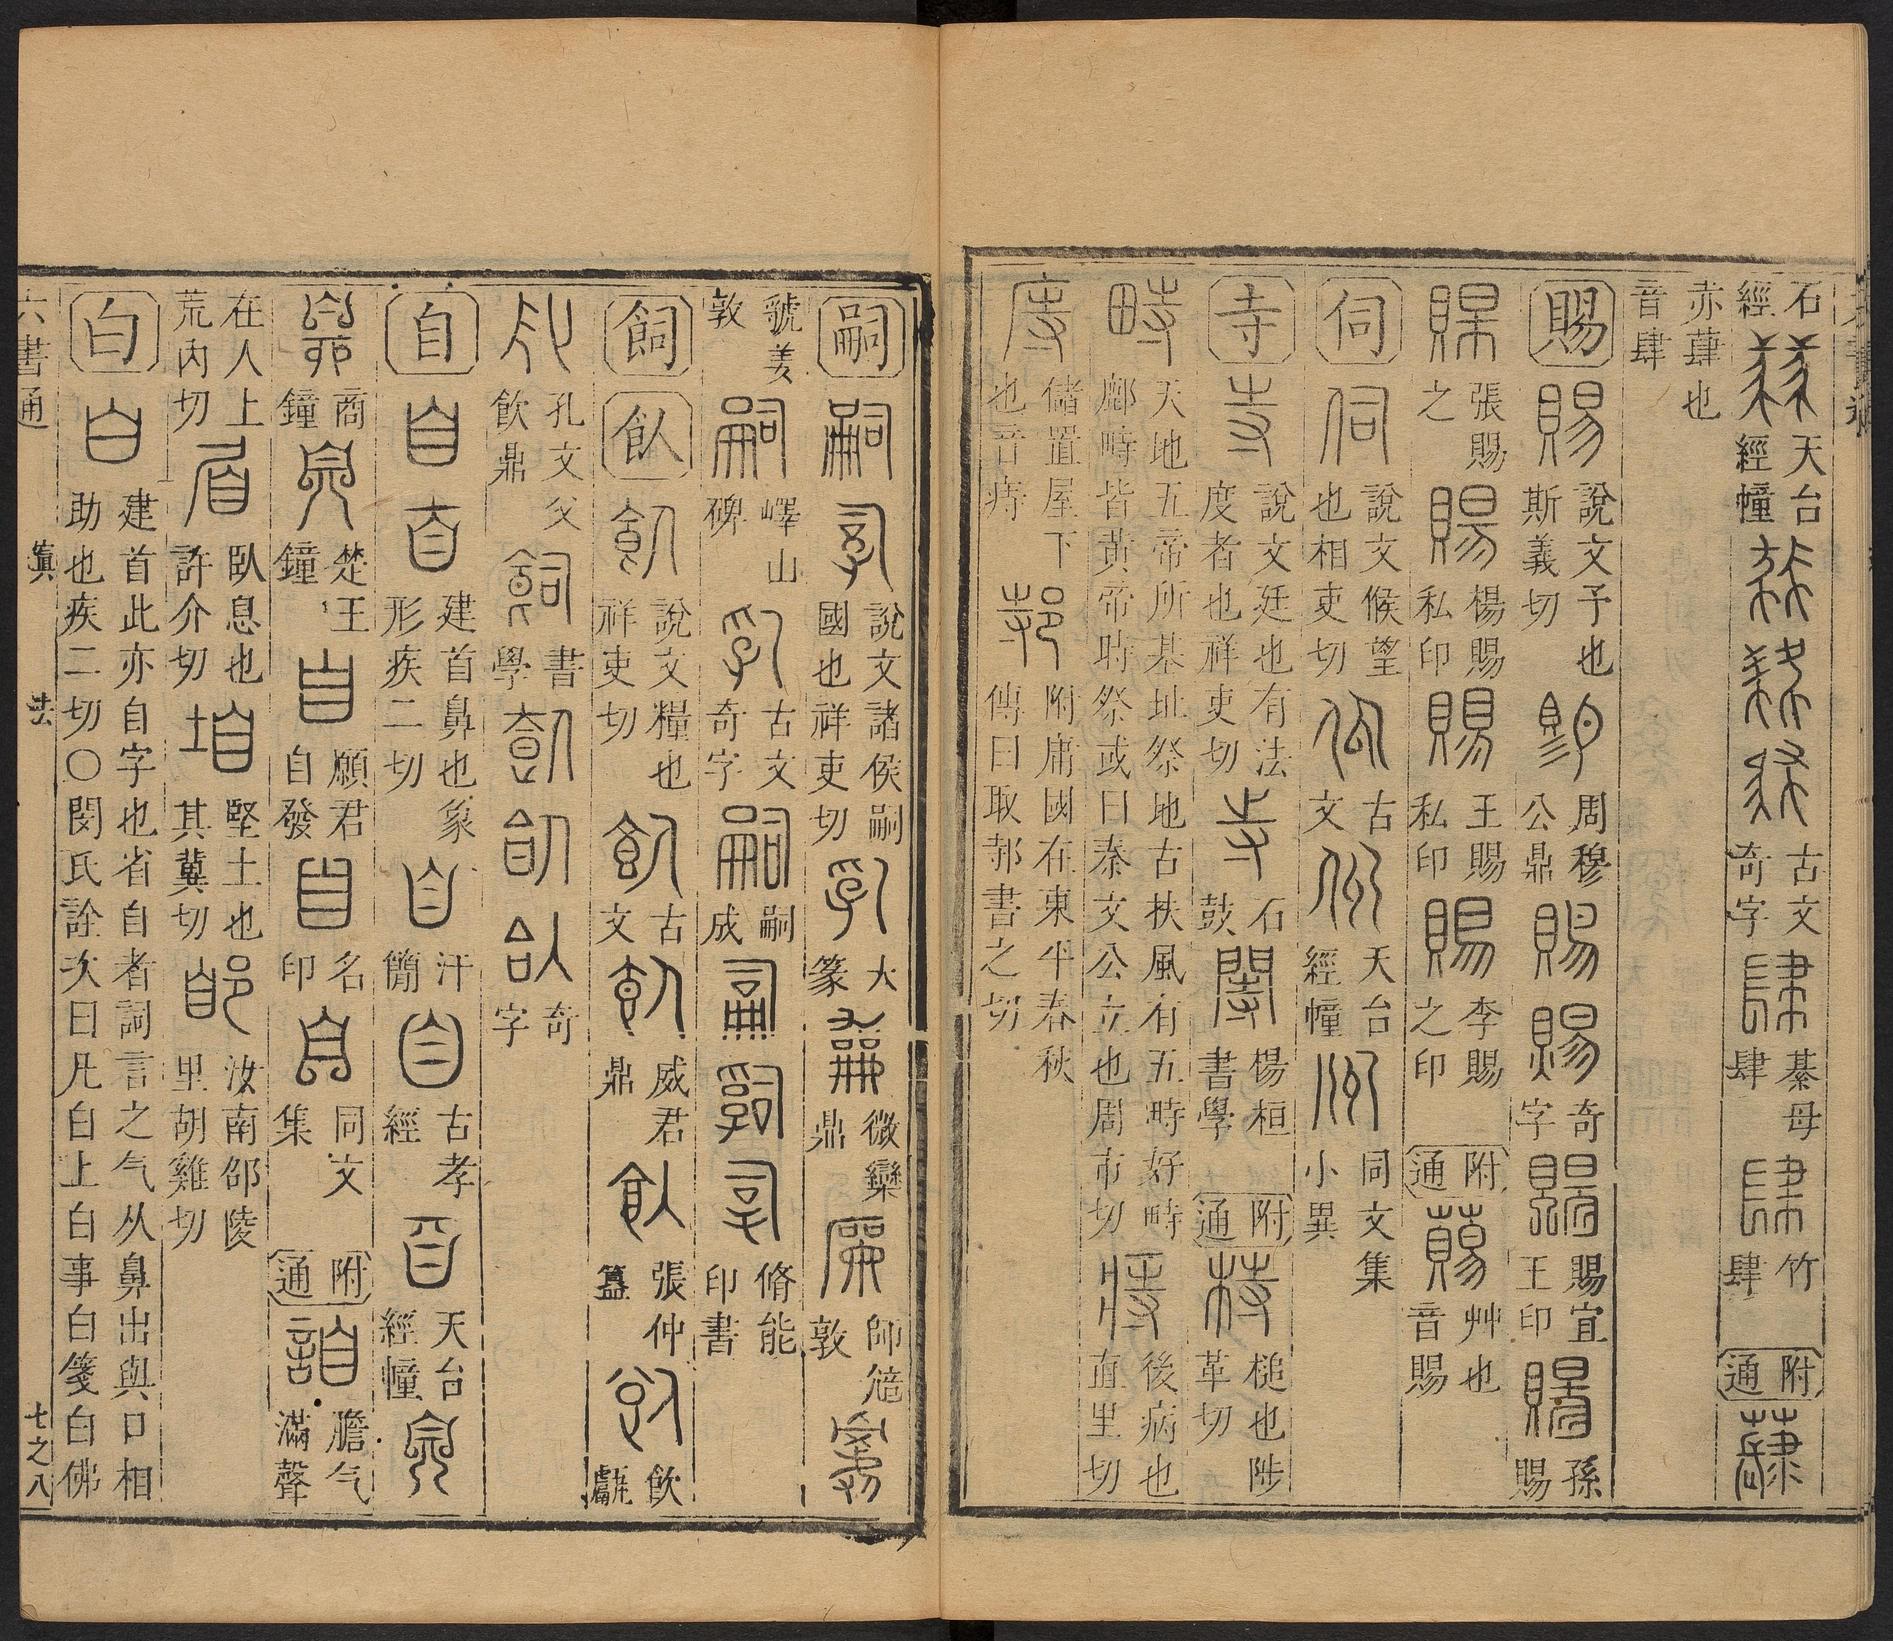 石經 天台經幢 古文奇字 綦母肆 竹肆 附通
赤蕼也音肆
賜 說文予也斯義切 周穆公鼎 奇字 賜宜王印 孫賜
張賜之 楊賜私印 王賜私印 李賜之印 附通 艸也音賜
伺 說文候望也相吏切 古文 天台經幢 同文集小異
寺 說文廷也有法度者也祥吏切 石鼓 楊桓書學 附通 槌也陟革切
畤 天地五帝所基址祭地古扶風有五畤好畤鄜畤皆黃帝時祭或曰秦文公立也周市切 後病也直里切
庤 儲置屋下也音痔 邿 附庸國在東平春秋傳曰取邿書之切
嗣 說文諸侯嗣國也祥吏切 大篆 微欒鼎 師𩛥敦
虢姜敦 嶧山碑 古文奇字 嗣成 脩能印書
飼 飤 說文糧也祥吏切 古文 威君鼎 張仲簠 飲甗
孔文父飲鼎 書學 奇字
自 建首鼻也象形疾二切 汗簡 古孝經 天台經幢
商鐘 楚王鐘 願君自發 名印 同文集 附通 膽气滿聲
在人上荒內切 眉 臥息也許介切 垍 堅土也其冀切 郋 汝南邵陵里胡雞切
白 建首此亦自字也省自者詞言之气从鼻出與口相助也疾二切〇閔氏詮次曰凡白上白事白箋白佛
六書通 寘 法 七之八